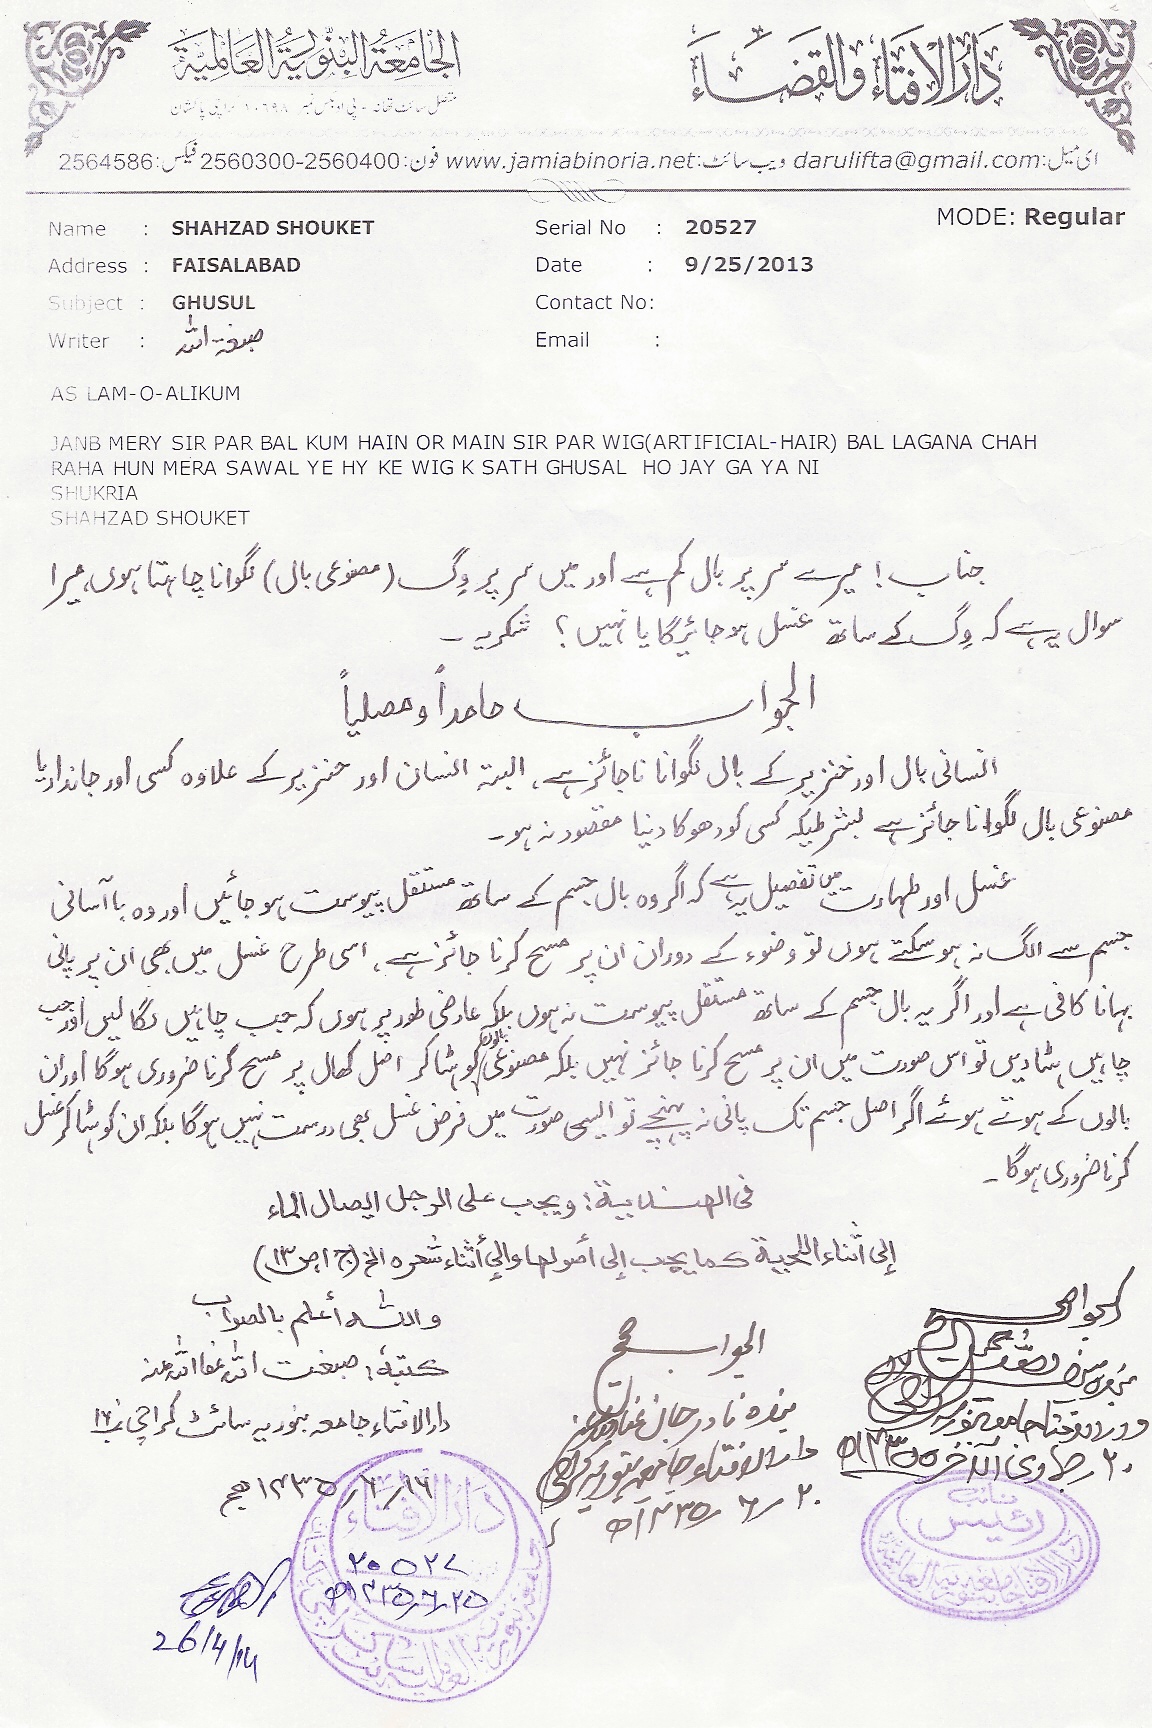 دَارُالاِفتَاءِ والقَضَاءَ
الجَامِعَةُ البِنّورِيَّةُ العَالَمِيَّة
ای میل: darulifta@gmail.com ویب سائٹ: www.jamiabinoria.net فون: 2560300-2560400 فیکس: 2564586
MODE: Regular
Name : SHAHZAD SHOUKET Serial No : 20527
Address : FAISALABAD Date : 9/25/2013
Subject : GHUSUL Contact No:
Writer : صبغت اللہ Email :
AS LAM-O-ALIKUM
JANB MERY SIR PAR BAL KUM HAIN OR MAIN SIR PAR WIG(ARTIFICIAL-HAIR) BAL LAGANA CHAH
RAHA HUN MERA SAWAL YE HY KE WIG K SATH GHUSAL HO JAY GA YA NI
SHUKRIA
SHAHZAD SHOUKET
جناب! میرے سر پر بال کم ہے اور میں سر پر وِگ (مصنوعی بال) لگوانا چاہتا ہوں، میرا
سوال یہ ہے کہ وِگ کے ساتھ غسل ہو جائیگا یا نہیں؟ شکریہ۔
الجواب حامداً ومصلیاً
انسانی بال اور خنزیر کے بال لگوانا ناجائز ہے، البتہ انسان اور خنزیر کے علاوہ کسی اور جاندار یا
مصنوعی بال لگوانا جائز ہے بشرطیکہ کسی کو دھوکا دینا مقصود نہ ہو۔
غسل اور طہارت میں تفصیل یہ ہے کہ اگر وہ بال جسم کے ساتھ مستقل پیوست ہو جائیں اور وہ باآسانی
جسم سے الگ نہ ہو سکتے ہوں تو وضوء کے دوران ان پر مسح کرنا جائز ہے، اسی طرح غسل میں بھی ان پر پانی
بہانا کافی ہے اور اگر یہ بال جسم کے ساتھ مستقل پیوست نہ ہوں بلکہ عارضی طور پر ہوں کہ جب چاہیں لگا لیں اور جب
چاہیں ہٹا دیں تو اس صورت میں ان پر مسح کرنا جائز نہیں بلکہ مصنوعی بالوں کو ہٹا کر اصل کھال پر مسح کرنا ضروری ہوگا اور ان
بالوں کے ہوتے ہوئے اگر اصل جسم تک پانی نہ پہنچے تو ایسی صورت میں فرض غسل بھی درست نہیں ہوگا بلکہ ان کو ہٹا کر غسل
کرنا ضروری ہوگا۔
فی الھندیۃ: ویجب علی الرجل ایصال الماء
إلی أثناء اللحیۃ کما یجب إلی أصولھا وإلی أثناء شعرہ الخ (ج۱ ص۱۳)
واللہ أعلم بالصواب
کتبہٗ: صبغت اللہ عفا اللہ عنہ
دارالافتاء جامعہ بنوریہ سائٹ کراچی
۱۶/۶/۱۴۳۵ھج
الجواب صحیح
بندہ نادر جان
دارالافتاء جامعہ بنوریہ کراچی
۲۰/۶/۱۴۳۵ھ
الجواب صحیح
۲۰ جمادی الآخر ۱۴۳۵ھ
نائب
رئیس
دار الافتاء
۲۰۵۲۷
۲۵/۶/۱۴۳۵ھ
26/4/14